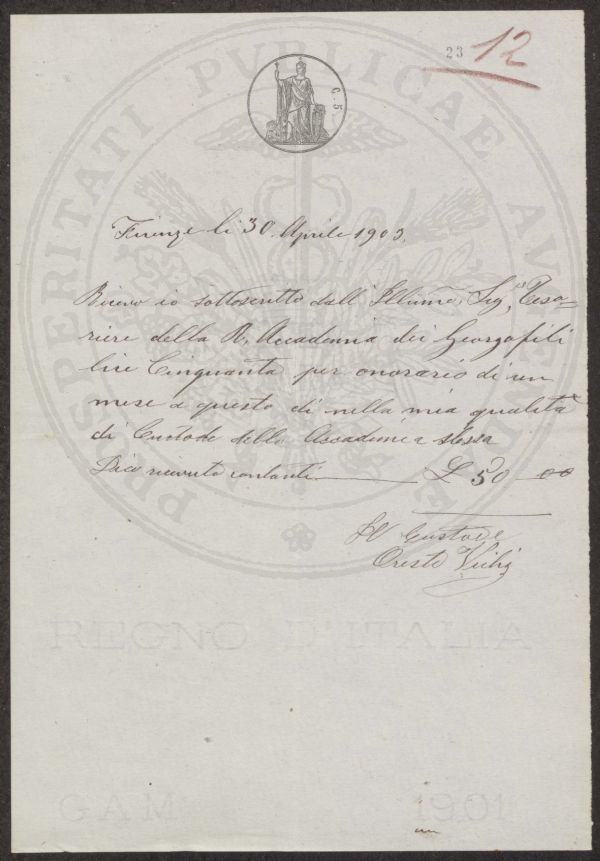 23 12
C. 5
PROSPERITATI PVBLICAE AVGENDAE
Firenze li 30 Aprile 1903.
Ricevo io sottoscritto dall' Illumo Sigr Teso=
riere della R. Accademia dei Georgofili
lire Cinquanta per onorario di un
mese a questo dì nella mia qualità
di Custode della Accademia stessa
Dico ricevuto contanti £ 50 00
Il Custode
Oreste
REGNO D'ITALIA
GAM 1901